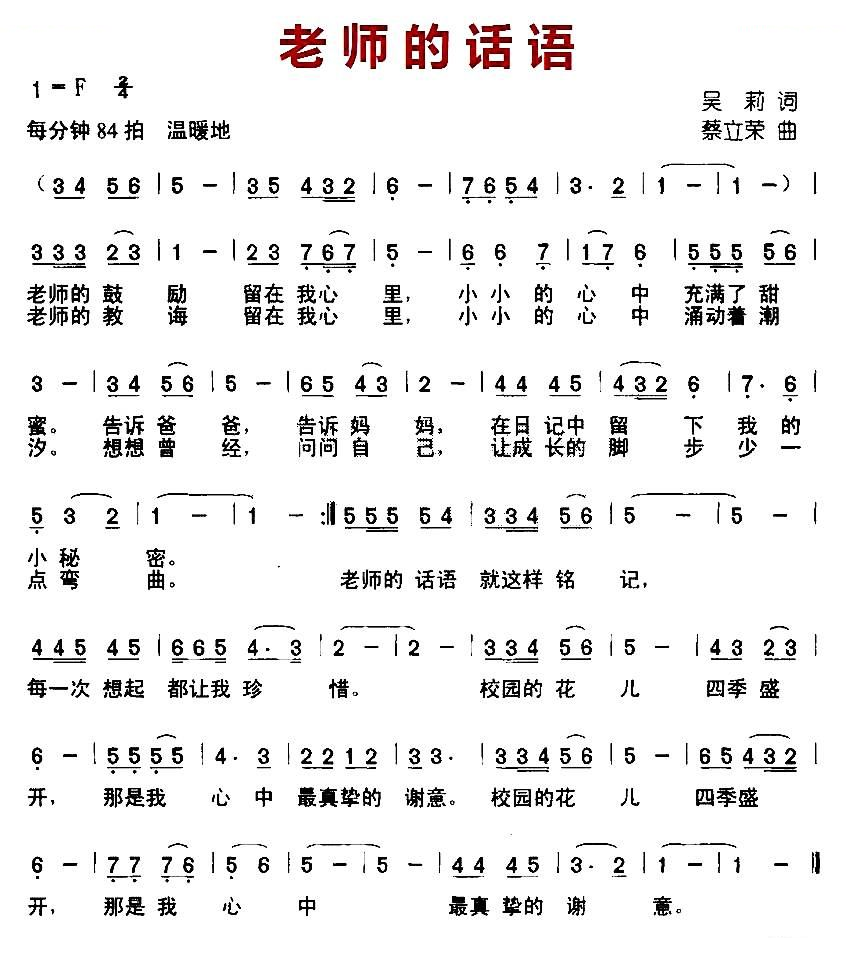 老师的话语
1=F 2/4
吴 莉 词
每分钟84拍 温暖地
蔡立荣 曲
(34 56 |5 - |35 432 |6 - |7654 |3· 2 |1 - |1 - )|
333 23 |1 - |23 767 |5 - |6 6 7 |17 6 |555 56 |
老师的 鼓 励 留在 我心 里, 小 小 的 心 中 充满了 甜
老师的 教 诲 留在 我心 里, 小 小 的 心 中 涌动着 潮
3 - |34 56 |5 - |65 43 |2 - |44 45 |432 6 |7· 6 |
蜜。 告诉 爸 爸, 告诉 妈 妈, 在日 记中 留 下 我 的
汐。 想想 曾 经, 问问 自 己, 让成 长的 脚 步 少 一
5 3 2 |1 - |1 - :‖555 54 |334 56 |5 - |5 - |
小 秘 密。
点 弯 曲。 老师的 话语 就这样 铭 记,
445 45 |665 4·3 |2 - |2 - |334 56 |5 - |43 23 |
每一次 想起 都让我 珍 惜。 校园的 花 儿 四季 盛
6 - |5555 |4· 3 |2212 |33· |334 56 |5 - |65 432 |
开, 那是我 心 中 最真挚的 谢意。 校园的 花 儿 四季盛
6 - |77 76 |5 6 |5 - |5 - |44 45 |3· 2 |1 - |1 - ‖
开, 那是 我 心 中 最真 挚的 谢 意。